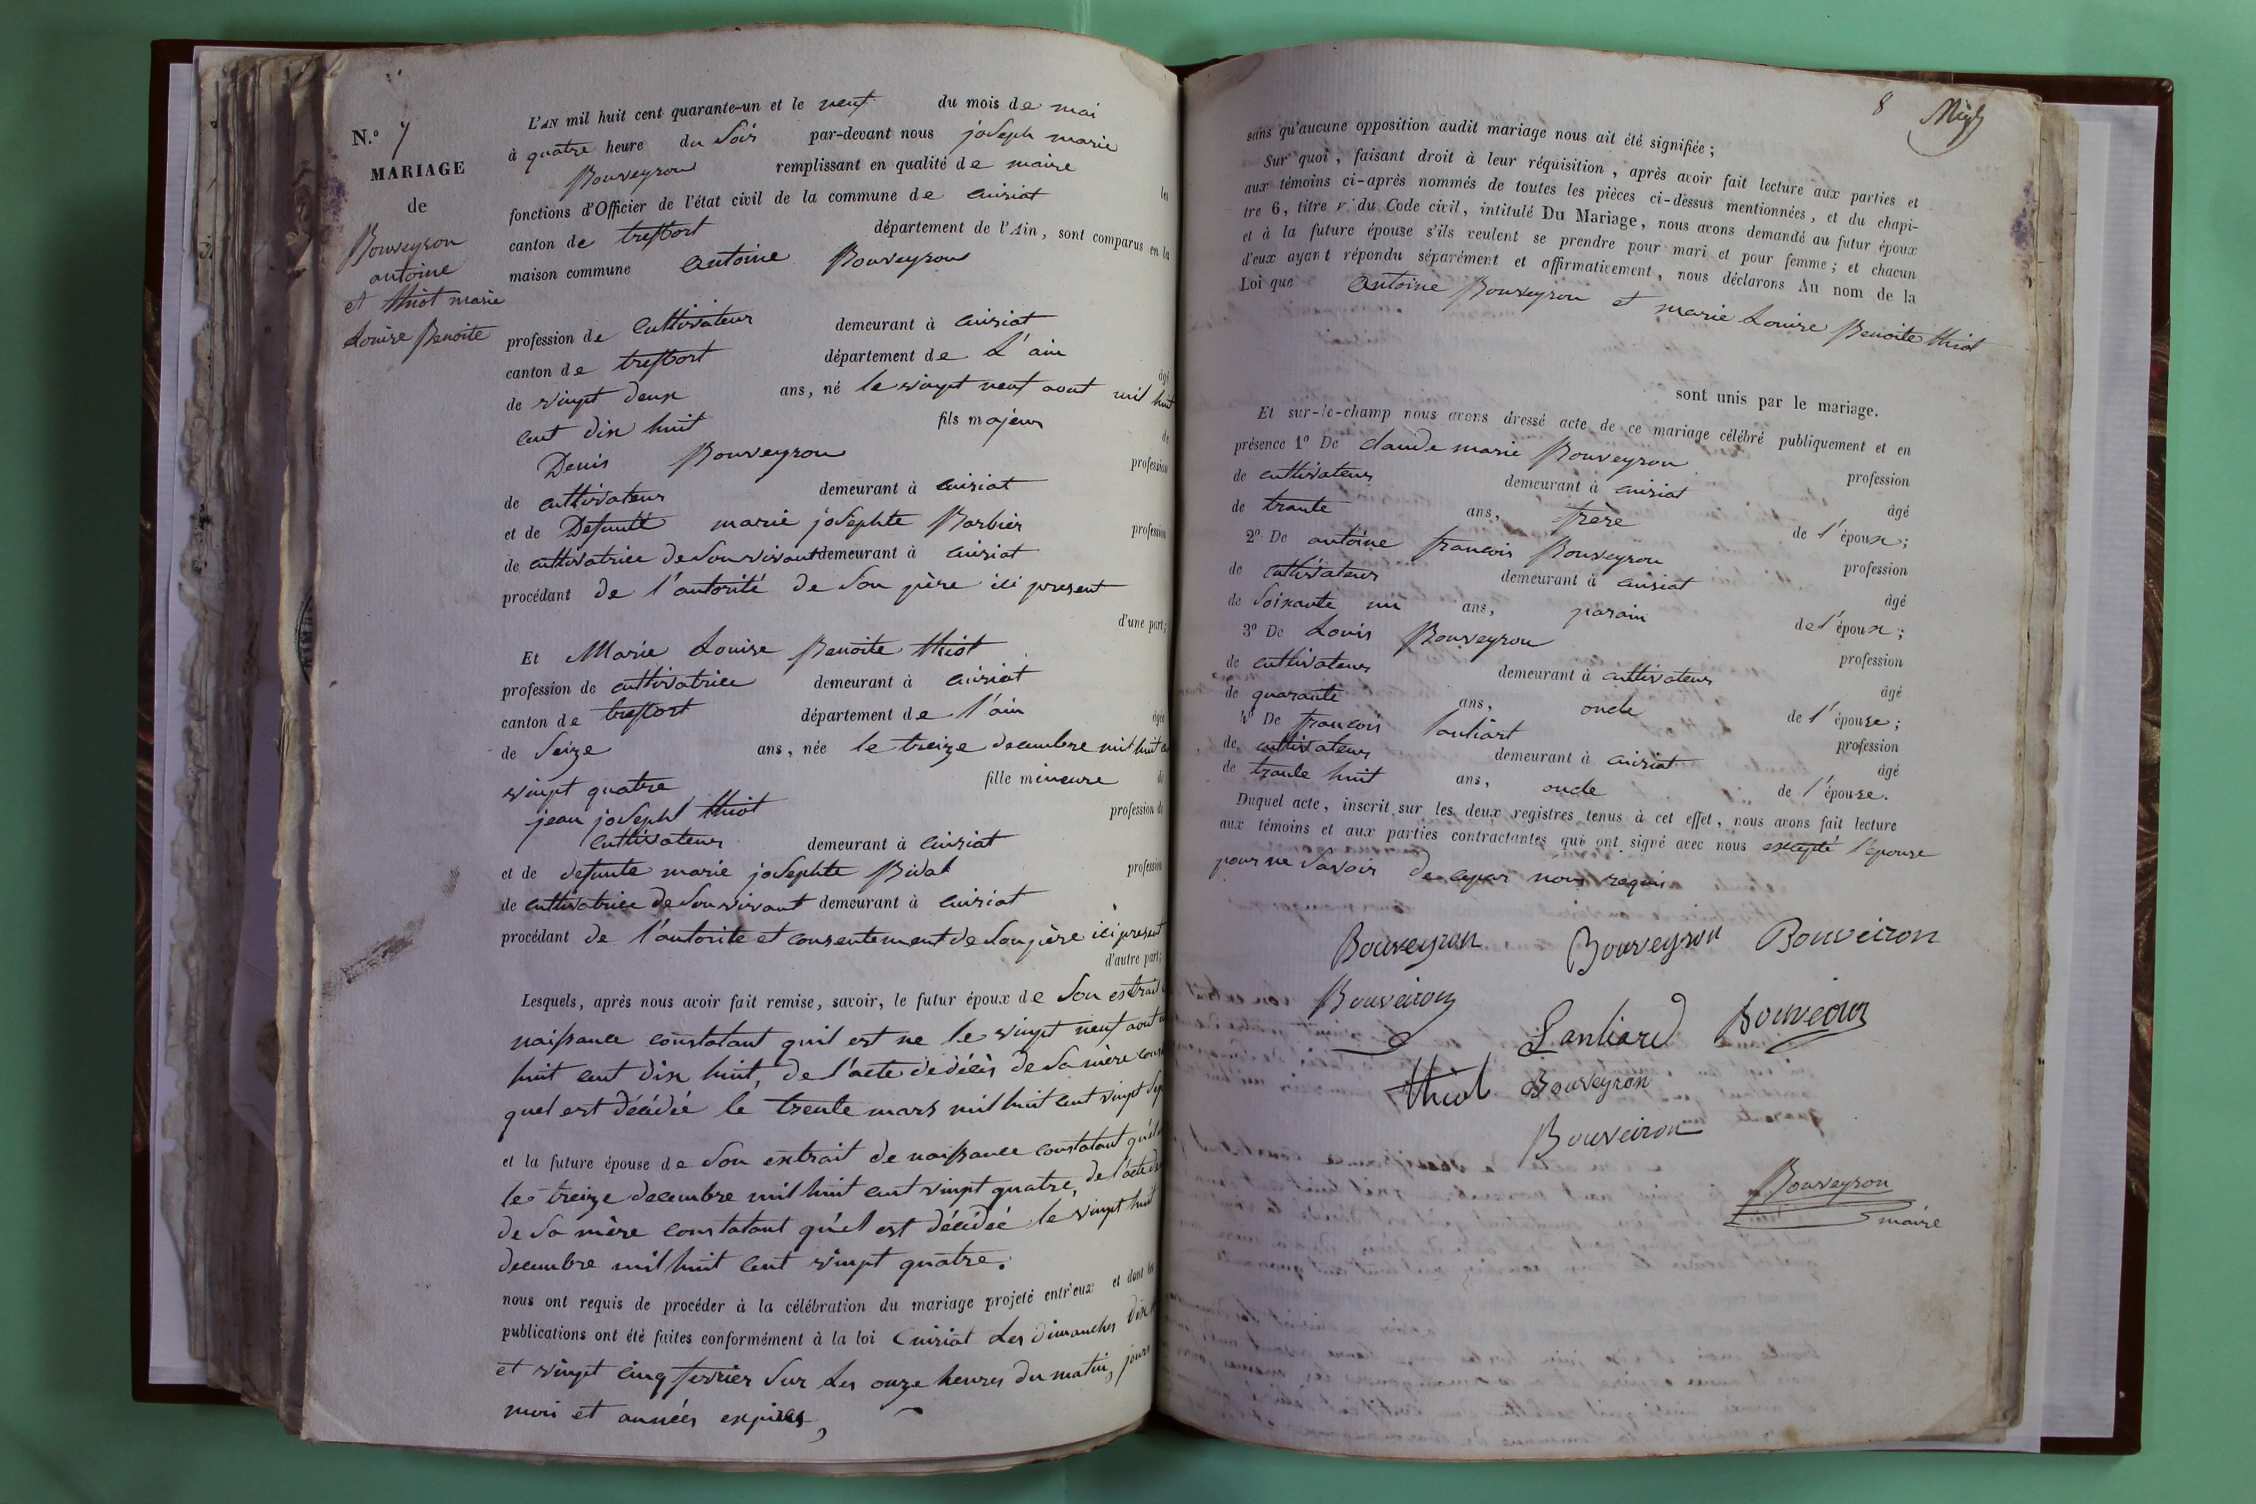 N.° 7
MARIAGE
de
Bouveyron
antoine
et thiot marie
Louise Benoite
L'AN mil huit cent quarante-un et le neuf du mois de mai
à quatre heure du Soir par-devant nous joseph marie
Bouveyron remplissant en qualité de maire les
fonctions d'Officier de l'état civil de la commune de Cuisiat
canton de treffort département de l'Ain, sont comparus en la
maison commune Antoine Bouveyron
profession de Cultivateur demeurant à Cuisiat
canton de treffort département de L'ain âgé
de vingt deux ans, né le vingt neuf aout mil huit
cent dix huit fils majeur de
Denis Bouveyron profession
de cultivateur demeurant à Cuisiat
et de Defunte marie josephte Barbier profession
de cultivatrice de Son vivant demeurant à Cuisiat
procédant de l'autorité de Son père ici present
d'une part;
Et Marie Louise Benoite thiot
profession de cultivatrice demeurant à Cuisiat
canton de treffort département de l'ain âgée
de Seize ans, née le treize decembre mil huit
vingt quatre fille mineure de
jean joseph thiot profession de
Cultivateur demeurant à Cuisiat
et de defunte marie josephte Bidal profession
de cultivatrice de Son vivant demeurant à Cuisiat
procédant de l'autorite et consentement de Son père ici present
d'autre part;
Lesquels, après nous avoir fait remise, savoir, le futur époux de Son extrait
naissance constatant quil est ne le vingt neuf aout
huit cent dix huit, de l'acte de décès de Sa mère
quel est décédée le trente mars mil huit cent vingt
et la future épouse de Son extrait de naissance constatant
le treize decembre mil huit cent vingt quatre, de l'acte
de Sa mère constatant qu'el est décédée le vingt huit
decembre mil huit cent vingt quatre.
nous ont requis de procéder à la célébration du mariage projeté entr'eux et dont les
publications ont été faites conformément à la loi Cuisiat Les dimanches
et vingt cinq fevrier Sur Les onze heures du matin, jours
mois et années expirées,
8
sans qu'aucune opposition audit mariage nous ait été signifiée;
Sur quoi, faisant droit à leur réquisition, après avoir fait lecture aux parties et
aux témoins ci-après nommés de toutes les pièces ci-dessus mentionnées, et du chapi-
tre 6, titre V du Code civil, intitulé Du Mariage, nous avons demandé au futur époux
et à la future épouse s'ils veulent se prendre pour mari et pour femme; et chacun
d'eux ayant répondu séparément et affirmativement, nous déclarons Au nom de la
Loi que Antoine Bouveyron et marie Louise Benoite thiot
sont unis par le mariage.
Et sur-le-champ nous avons dressé acte de ce mariage célébré publiquement et en
présence 1° De claude marie Bouveyron profession
de cultivateur demeurant à cuisiat âgé
de trante ans, frere de l'époux;
2° De antoine francois Bouveyron profession
de cultivateur demeurant à cuisiat âgé
de Soixante un ans, parain de l'époux;
3° De Louis Bouveyron profession
de cultivateur demeurant à cultivateur âgé
de quarante ans, oncle de l'épouse;
4° De francois profession
de cultivateur demeurant à cuisiat âgé
de trante huit ans, oncle de l'épouse.
Duquel acte, inscrit sur les deux registres tenus à cet effet, nous avons fait lecture
aux témoins et aux parties contractantes qui ont signé avec nous excepté l'epouse
pour ne Savoir de cepar nous requis
Bouveyron Bouveyron Bouveiron
Bouveiron
thiot Bouveyron
Bouveiron
Bouveyron
maire